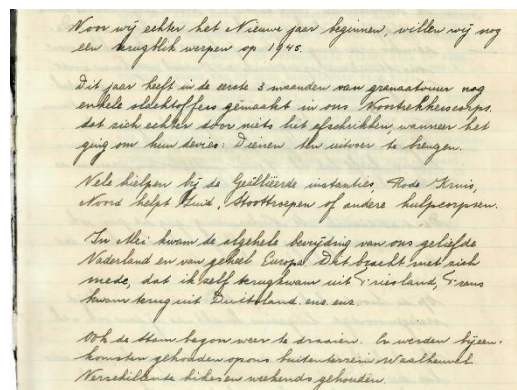 Voor wij echter het Nieuwe jaar beginnen, willen wij nog
een terugblik werpen op 1945.
Dit jaar heeft in de eerste 3 maanden van granaatvuur nog
enkele slachtoffers gemaakt in ons Voortrekkerscorps.
dat zich echter door niets liet afschrikken, wanneer het
ging om hun devies: Dienen ten uitvoer te brengen.
Vele hielpen bij de Geällieerde instanties, Rode Kruis,
Noord helpt Zuid, Stoottroepen of andere hulpcorpsen.
In Mei kwam de algehele bevrijding van ons geliefde
Vaderland en van geheel Europa. Dit bracht met zich
mede, dat ik zelf terugkwam uit Friesland, Frans
kwam terug uit Duitsland. enz. enz.
Ook de stam begon weer te draaien. Er werden bijeen-
komsten gehouden op ons buitenterrein Waalheuvel
Verschillende hikes en weekends gehouden.